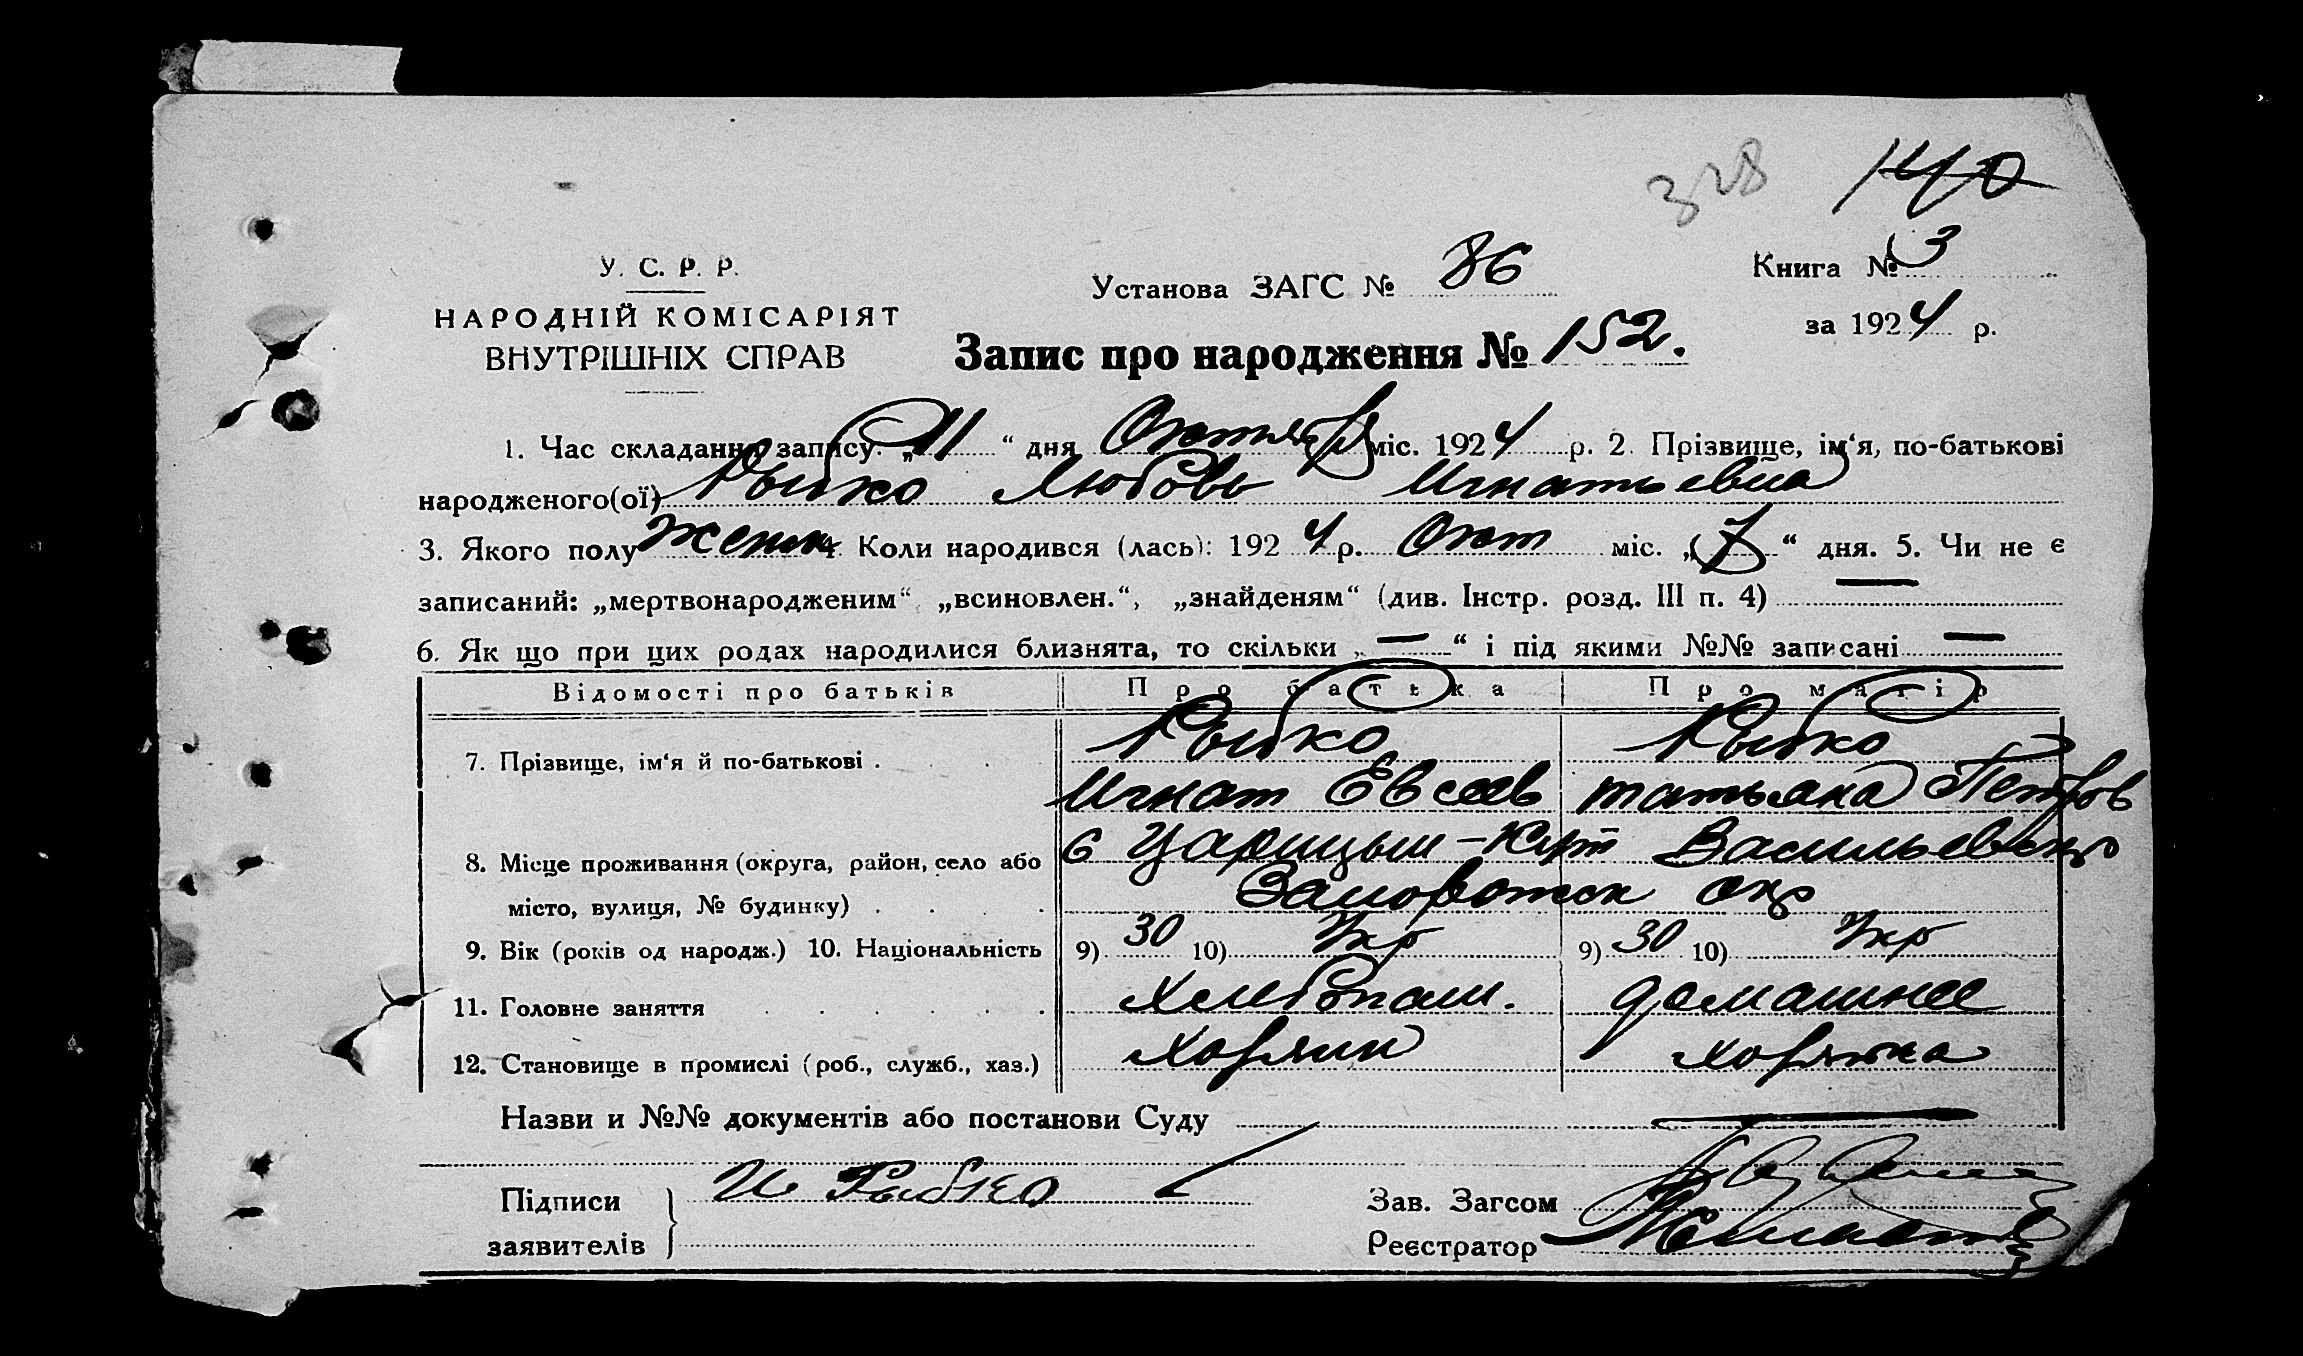 328 140
У. С. Р. Р.
НАРОДНІЙ КОМІСАРІЯТ
ВНУТРІШНІХ СПРАВ
Установа ЗАГС № 86
Книга № 3
за 1924 р.
Запис про народження № 152.
1. Час складання запису: „11“ дня Октября міс. 1924 р. 2. Прізвище, ім‘я, по-батькові
народженого(ої) Рыбко Любовь Игнатьевна
3. Якого полу женск 4. Коли народився (лась): 1924 р. Окт міс. „7“ дня. 5. Чи не є
записаний: „мертвонародженим“, „всиновлен.“, „знайденям“ (див. Інстр. розд. III п. 4) —
6. Як що при цих родах народилися близнята, то скільки „—“ і під якими №№ записані —
Відомості про батьків Про батька Про матір
7. Прізвище, ім‘я й по-батькові . Рыбко Рыбко
Игнат Евсеев татьяна Петров
8. Місце проживання (округа, район, село або с Царицын-Кут Васильевск
місто, вулиця, № будинку) . . . . окр
9. Вік (років од народж.) 10. Національність 9) 30 10) Укр 9) 30 10) Укр
11. Головне заняття . . . . . . Хлебопаш. домашнее
12. Становище в промислі (роб., служб., хаз.) хозяин хозяйка
Назви и №№ документів або постанови Суду —
Підписи И Рыбко
заявителів
Зав. Загсом
Реєстратор